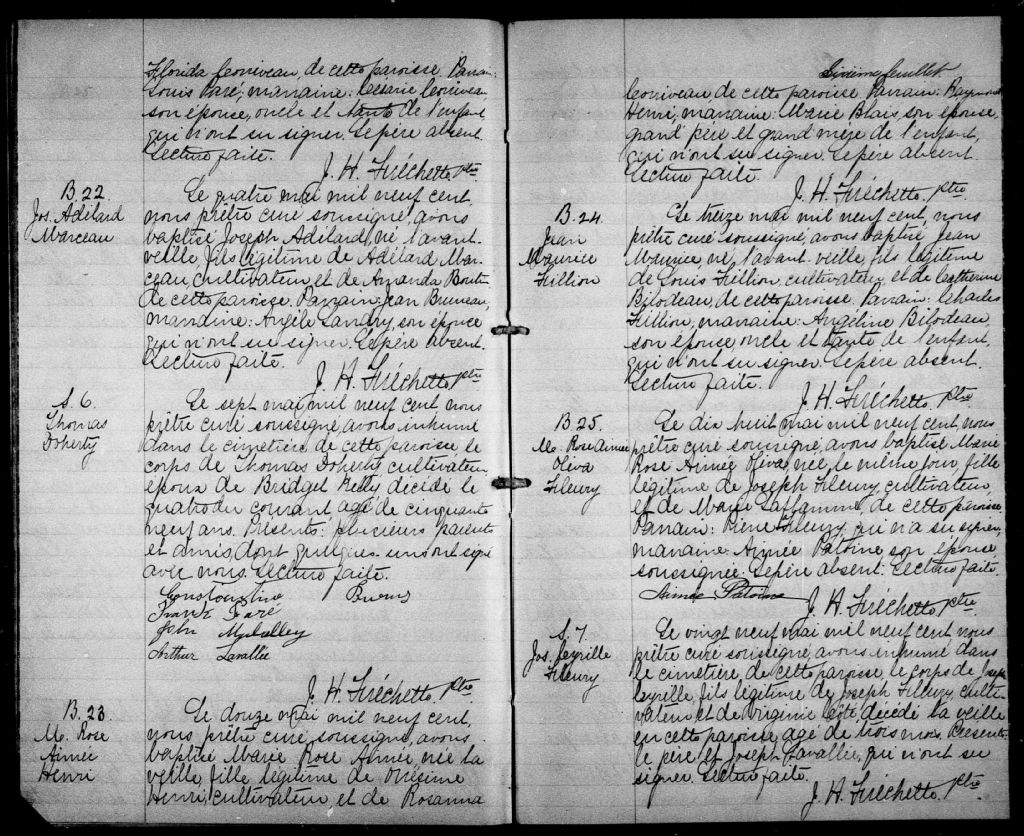 Florida Croniveau, de cette paroisse. Parrain:
Louis Paré; marraine: Césarie Croniveau
son épouse, oncle et tante de l'enfant
qui n'ont su signer. Le père absent.
Lecture faite.
J. H. Fréchette ptre
B. 22
Jos. Adélard
Marceau
Le quatre mai mil neuf cent,
nous prêtre curé soussigné, avons
baptisé Joseph Adélard, né l'avant-
veille, fils légitime de Adélard Mar-
ceau, cultivateur, et de Amanda Boutin
de cette paroisse. Parrain: Jean Bruneau,
marraine: Angèle Landry, son épouse
qui n'ont su signer. Le père absent.
Lecture faite.
J. H. Fréchette ptre
S. 6.
Thomas
Doherty
Le sept mai mil neuf cent nous
prêtre curé soussigné avons inhumé
dans le cimetière de cette paroisse le
corps de Thomas Doherty cultivateur
époux de Bridget Kelly décédé le
quatre du courant agé de cinquante
neuf ans. Présents: plusieurs parents
et amis dont quelques uns ont signé
avec nous. Lecture faite.
Constantine Burns
Frank Paré
John
Arthur Lavallée
J. H. Fréchette ptre
B. 23
M. Rose
Aimée
Henri
Le douze mai mil neuf cent,
nous prêtre curé soussigné, avons
baptisé Marie Rose Aimée, née la
veille, fille légitime de Onésime
Henri, cultivateur, et de Rosanna
Sixième feuillet.
Croniveau de cette paroisse. Parrain: Raymond
Henri, marraine: Marie Blais son épouse,
grand père et grand mère de l'enfant,
qui n'ont su signer. Le père absent.
Lecture faite.
J. H. Fréchette ptre
B. 24
Jean
Maurice
Fillion
Le treize mai mil neuf cent, nous
prêtre curé soussigné, avons baptisé Jean
Maurice né, l'avant veille, fils légitime
de Louis Fillion, cultivateur, et de Catherine
Bilodeau, de cette paroisse. Parrain: Charles
Fillion, marraine: Angéline Bilodeau,
son épouse, oncle et tante de l'enfant,
qui n'ont su signer. Le père absent.
Lecture faite.
J. H. Fréchette. ptre
B. 25.
M. Rose Aimée
Oliva
Fleury
Le dix huit mai mil neuf cent nous
prêtre curé soussigné, avons baptisé Marie
Rose Aimée Oliva, née, le même jour, fille
légitime de Joseph Fleury, cultivateur,
et de Marie Laflamme, de cette paroisse
Parrain: Pierre Fleury, qui n'a su signer,
marraine Aimée Patoine son épouse,
soussignée. Le père absent. Lecture faite.
Aimée Patoine
J. H. Fréchette ptre
S. 7.
Jos. Cyrille
Fleury
Le vingt neuf mai mil neuf cent nous
prêtre curé soussigné, avons inhumé dans
le cimetière, de cette paroisse, le corps de Joseph
Cyrille, fils légitime de Joseph Fleury, culti-
vateur, et de Virginie Côté, décédé la veille
en cette paroisse, agé de trois mois. Présents
le père et Joseph Lavallée, qui n'ont su
signer. Lecture faite.
J. H. Fréchette. ptre